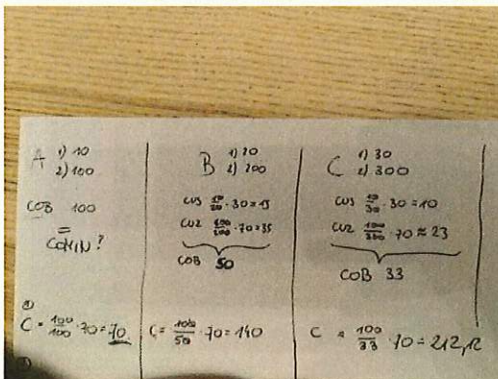 A 1) 10
2) 100
COB 100
=
COMIN?
C = 100/100 · 70 = 70
B 1) 20
2) 200
CU1 10/20 · 30 = 15
CU2 100/200 · 70 = 35
COB 50
C = 100/50 · 70 = 140
C 1) 30
2) 300
CU1 10/30 · 30 = 10
CU2 100/300 · 70 ≈ 23
COB 33
C = 100/33 · 70 = 212,12